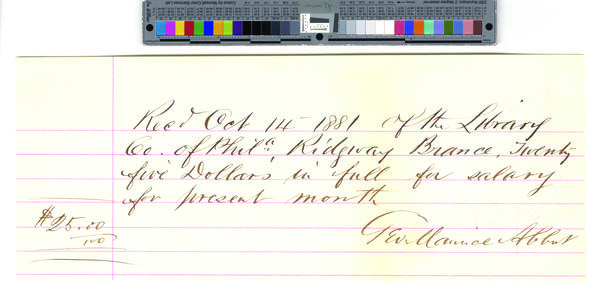 Recd Oct 14 1881 of the Library
Co. of Phila, Ridgway Brance, Twenty
five Dollars in full for salary
for present month
$25.00/100
Geo. Maurice Abbot